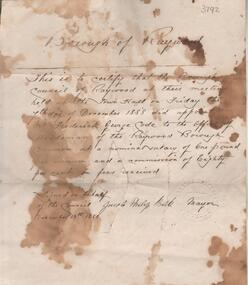 3792
Borough of Raywood
This is to certify that the Borough
Council of Raywood at their meeting
held at the Town Hall on Friday the
7th day of December 1888 did appoint
Mr Frederick George Code to the Office of
of the Raywood Borough
at a nominal salary of One pound
and a commission of Eighty
per cent on fees received
Signed on behalf
of the Council Jacob Philip Bolt Mayor
December